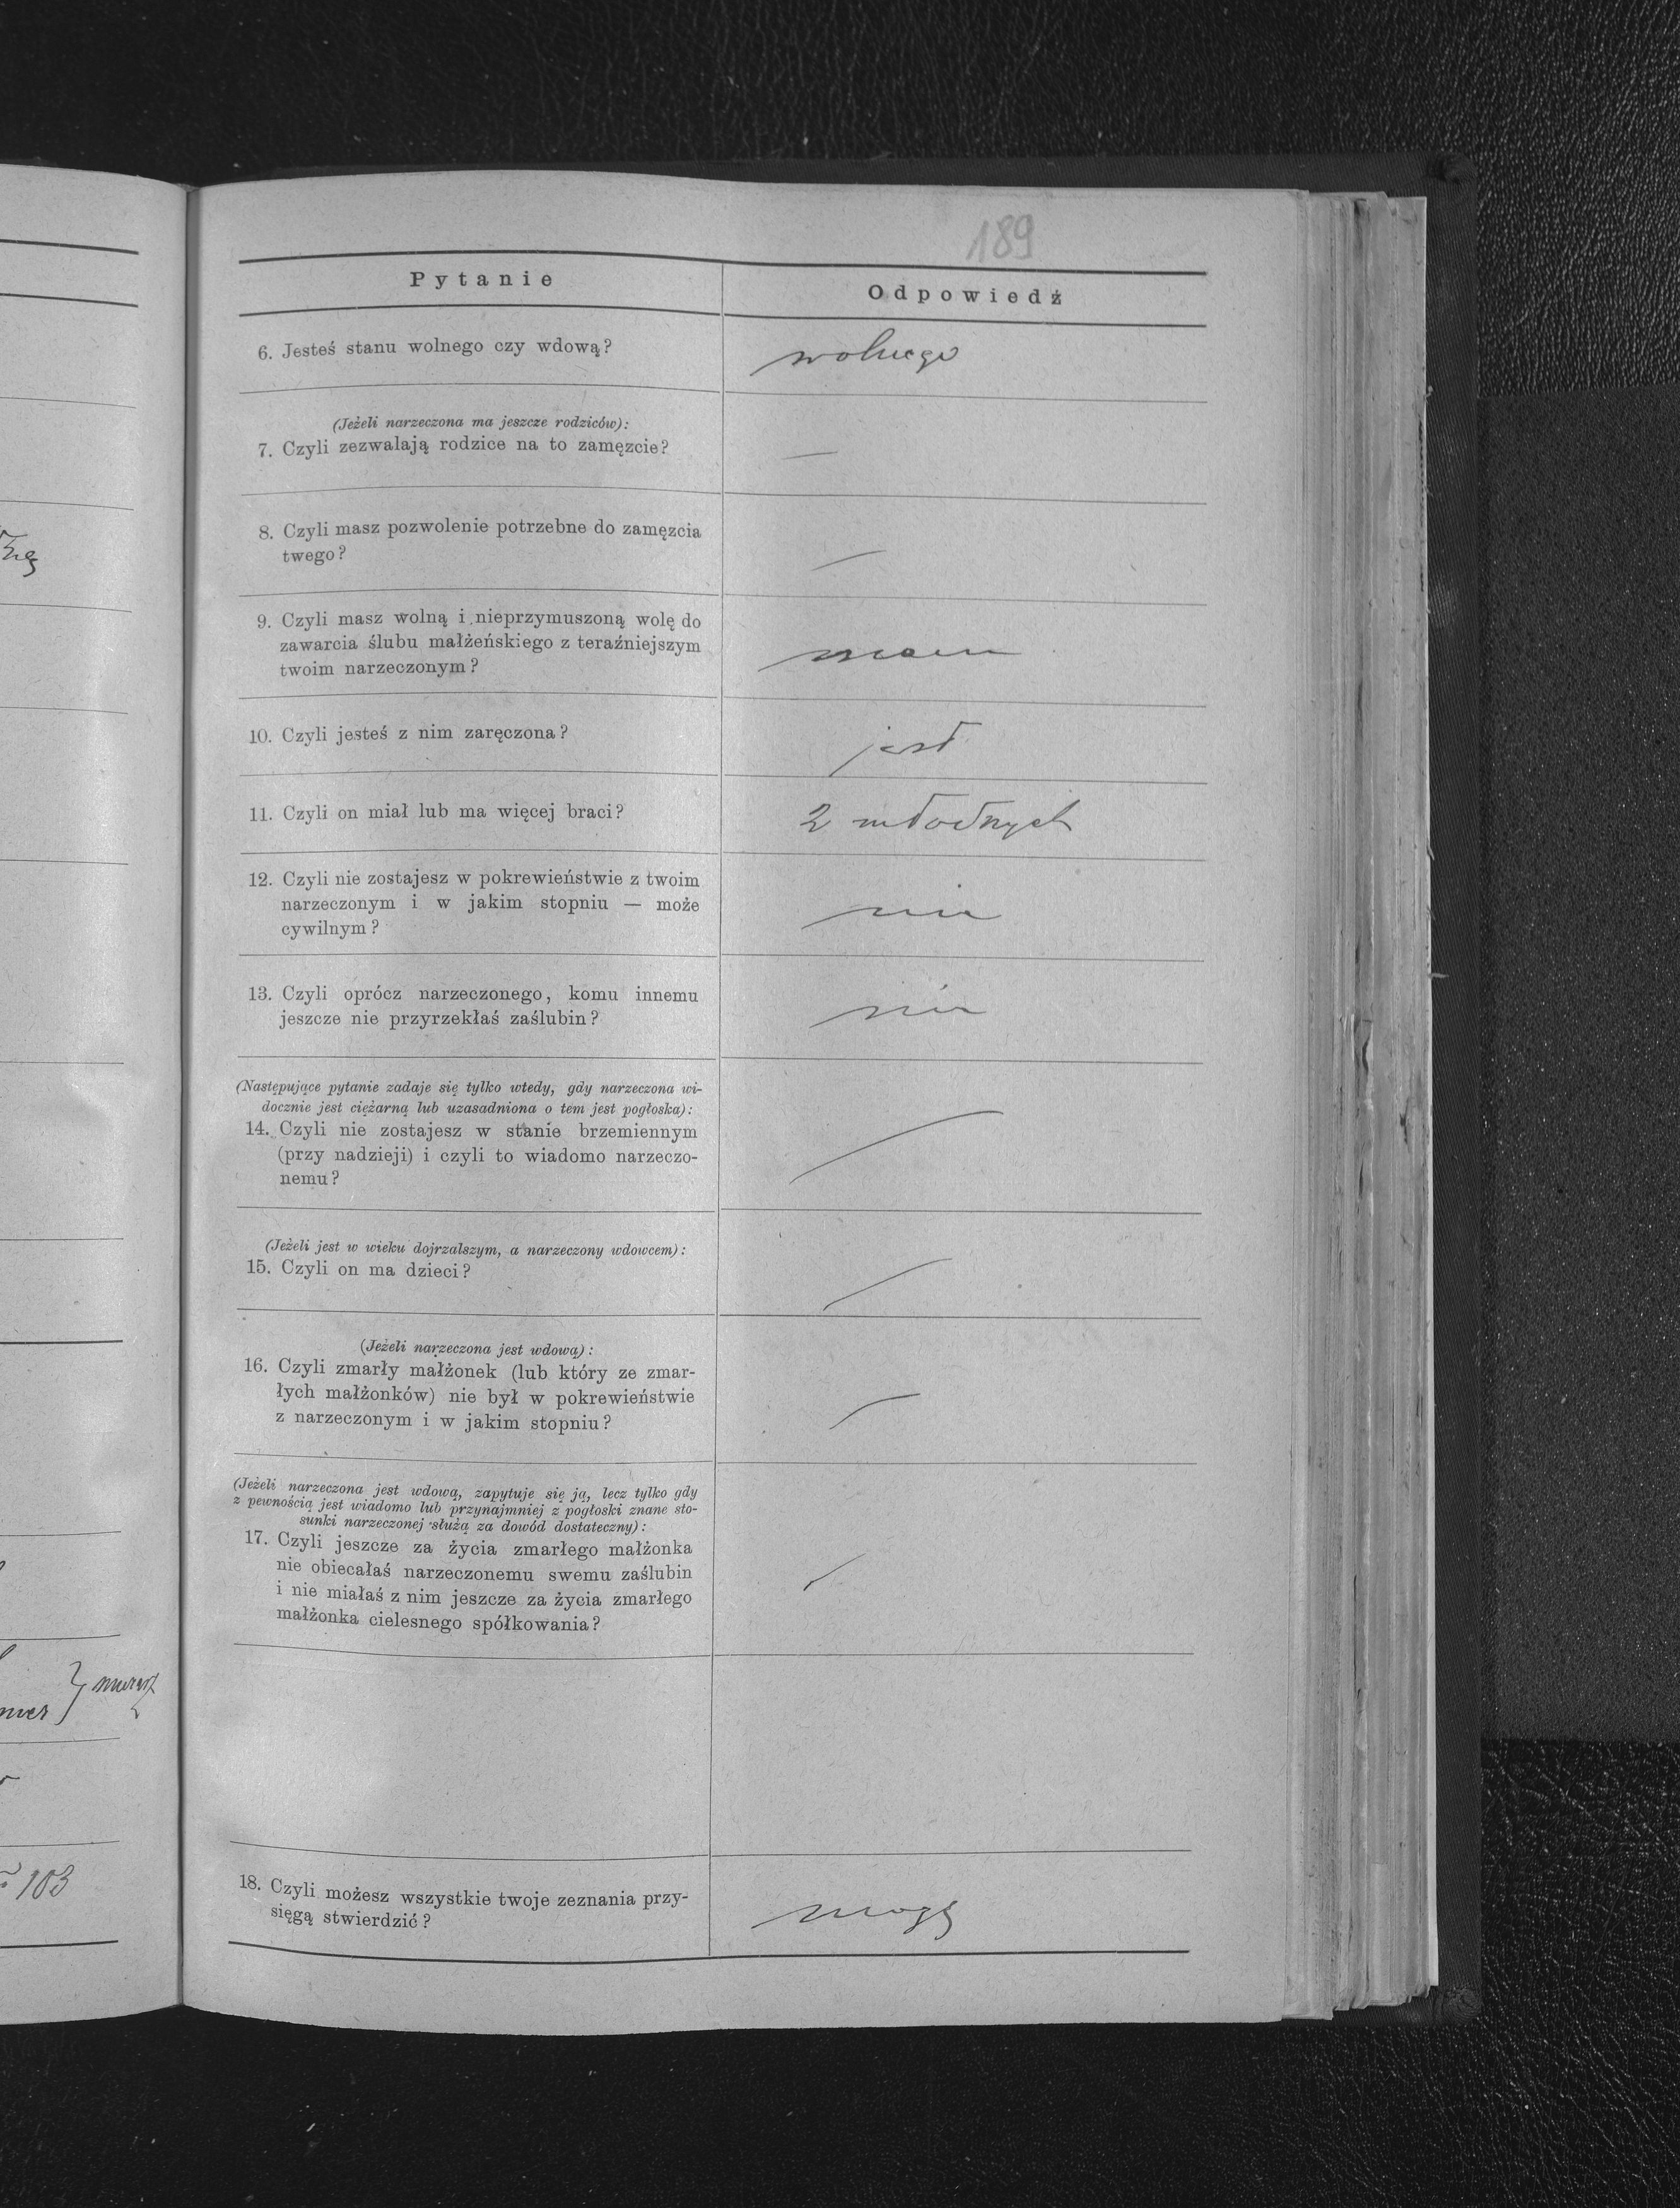 189
Pytanie
Odpowiedź
6. Jesteś stanu wolnego czy wdową?
wolnego
(Jeżeli narzeczona ma jeszcze rodziców):
7. Czyli zezwalają rodzice na to zamęzcie?
—
8. Czyli masz pozwolenie potrzebne do zamęzcia
twego?
—
9. Czyli masz wolną i nieprzymuszoną wolę do
zawarcia ślubu małżeńskiego z teraźniejszym
twoim narzeczonym?
mam
10. Czyli jesteś z nim zaręczona?
jest
11. Czyli on miał lub ma więcej braci?
2 młodszych
12. Czyli nie zostajesz w pokrewieństwie z twoim
narzeczonym i w jakim stopniu — może
cywilnym?
nie
13. Czyli oprócz narzeczonego, komu innemu
jeszcze nie przyrzekłaś zaślubin?
nie
(Następujące pytanie zadaje się tylko wtedy, gdy narzeczona wi-
docznie jest ciężarną lub uzasadniona o tem jest pogłoska):
14. Czyli nie zostajesz w stanie brzemiennym
(przy nadzieji) i czyli to wiadomo narzeczo-
nemu?
—
(Jeżeli jest w wieku dojrzalszym, a narzeczony wdowcem):
15. Czyli on ma dzieci?
—
(Jeżeli narzeczona jest wdową):
16. Czyli zmarły małżonek (lub który ze zmar-
łych małżonków) nie był w pokrewieństwie
z narzeczonym i w jakim stopniu?
—
(Jeżeli narzeczona jest wdową, zapytuje się ją, lecz tylko gdy
z pewnością jest wiadomo lub przynajmniej z pogłoski znane sto-
sunki narzeczonej służą za dowód dostateczny):
17. Czyli jeszcze za życia zmarłego małżonka
nie obiecałaś narzeczonemu swemu zaślubin
i nie miałaś z nim jeszcze za życia zmarłego
małżonka cielesnego spółkowania?
—
18. Czyli możesz wszystkie twoje zeznania przy-
sięgą stwierdzić?
mogę
103